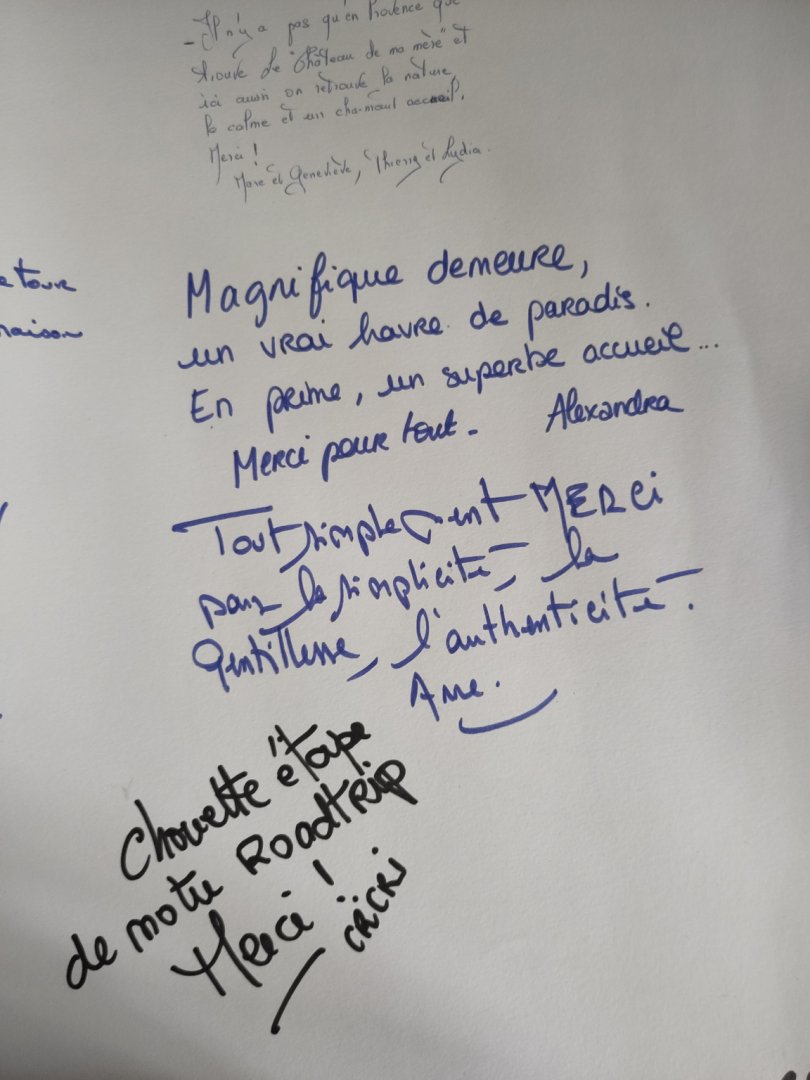 - Il n'y a pas qu'en Provence que
trouve Le "Château de ma mère" et
ici aussi on retrouve la nature,
le calme et un charmant accueil.
Merci !
Marc et Geneviève, Thierry et Lydia.
tour
maison
Magnifique demeure,
un vrai havre de paradis.
En prime, un superbe accueil...
Merci pour tout. Alexandra
Tout simplement MERCi
pour la simplicité, la
Gentillesse, l'authenticité.
Anne.
Chouette étape
de notre Roadtrip
Merci !
CRiCRi